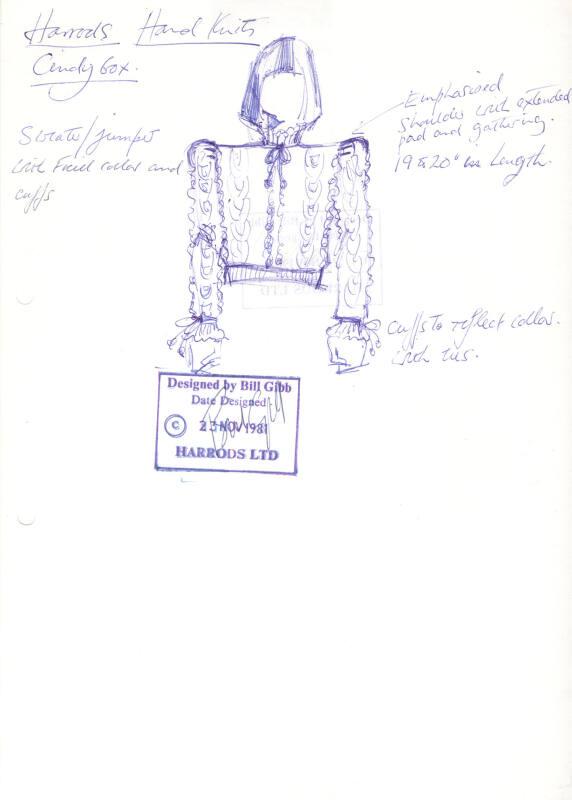 Harrods Hand Knits
Cindy Cox.
Sweater/jumper
with Frill collar and
cuffs
Emphasised
shoulder with extended
pad and gathering.
19 to 20" in length.
cuffs to reflect collar
with ties.
Designed by Bill Gibb
Date Designed
© 23 NOV 1981
HARRODS LTD